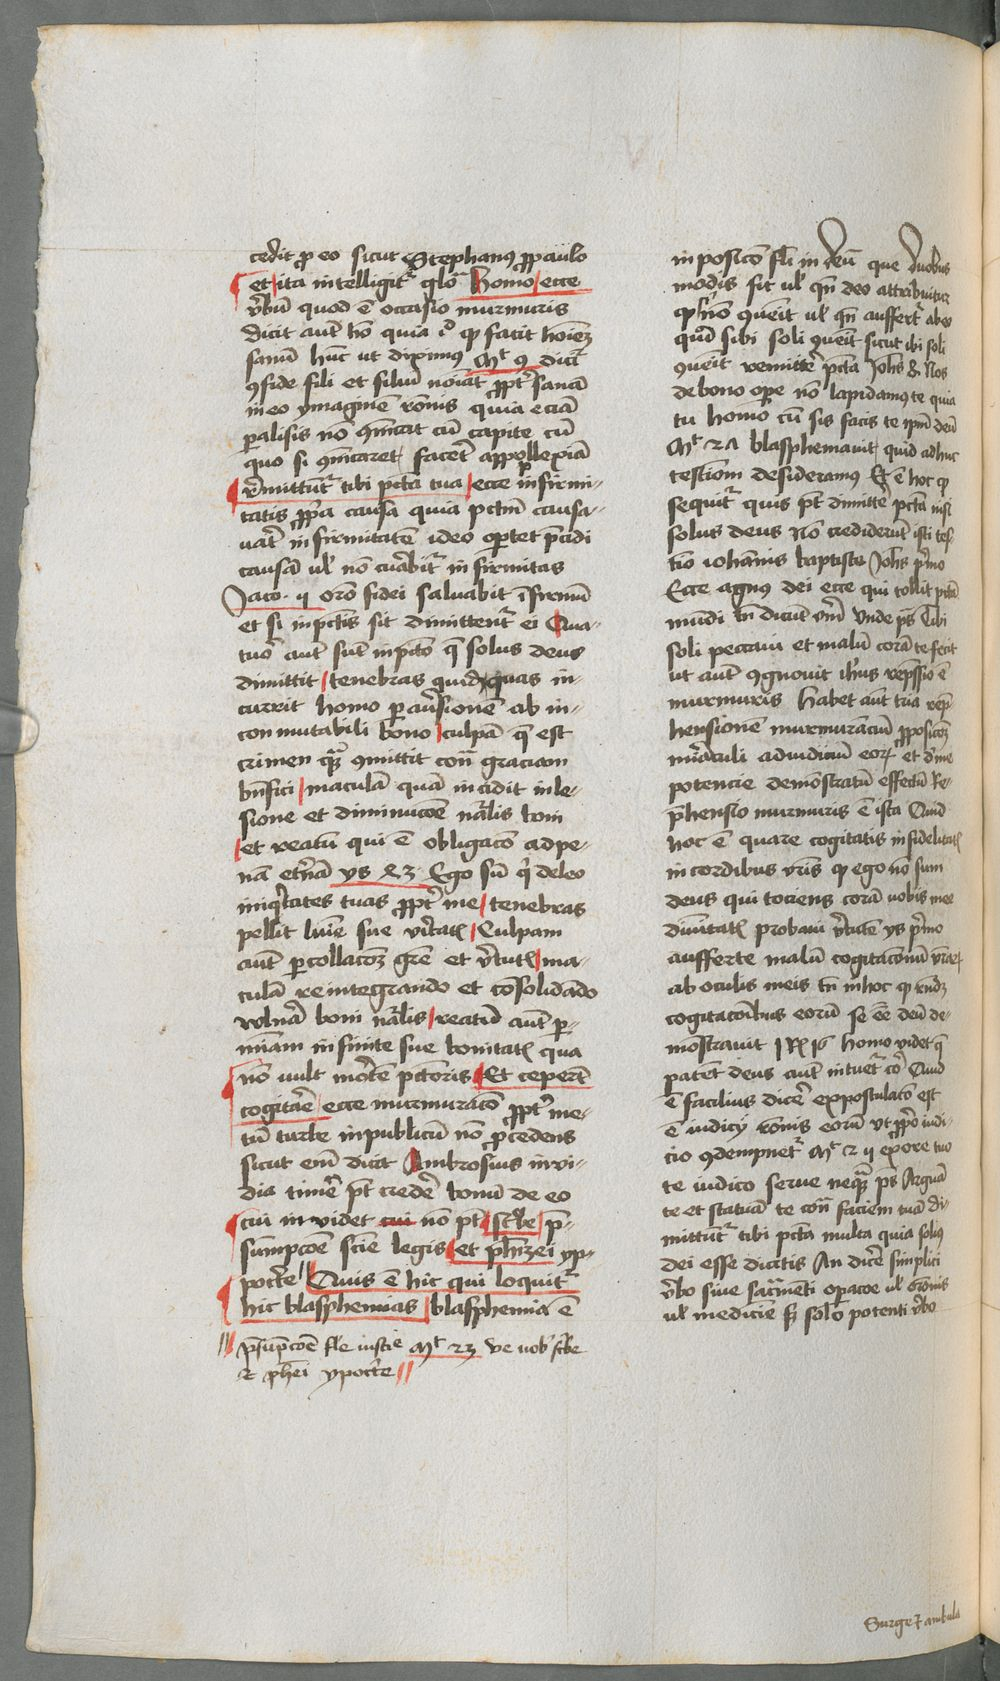 cedit p eo sicut Stephanus p paulo
et ita intelligitr glo Homo ecce
vbũ quod ē occasio murmuris
dicit autē hō quia io qp facit hoiem
sanū hūc ut diximus Mt 9 dicit
9fide fili et filiū noīat ppt sanā
in eo ymaginē rōnis quia eciā
palisis nō 9nicat cū capite cū
quo si 9nicaret facet appoplexiā
rēmittūtr tibi pctā tua ecce infirmi-
tatis ppa causa quia pctm causa-
uat infirmitatē ideo optet pcidi
causā ul nō cuabitr infirmitas
Jaco ij orō fidei saluabit ifirmū
et si in pctis sit dimittentr ei Qua-
tuor aut sūt in pctō q solus deus
dimittit tenebras quas in-
currit homo p auisionē ab in-
conmutabili bono culpā q est
crimen 9mittit con graciam
bnfici maculā quā incidit in le-
sione et diminucōe nālis boni
et reatum qui ē obligacō ad pe-
nā etnā ys 43 Ego sū q deleo
iniqtates tuas ppt me tenebras
pellit lumē sue vitatis Culpam
aut p collacōz gre et vtutis ma-
culā reintegrando et consolidādo
vulnā boni nālis reatū aut p-
miam infinite sue bonitatis qua
nō uult mortē pctoris Et cepert
cogitare ecce murmuracō ppt me-
tū turbe in publicū nō pcedens
sicut eni dicit Ambrosius in vi-
dia timē pt credē bonū de eo
cui in videt cui nō pt scbe p-
sumpcōe scie legis et phizei yp-
pocrite Quis ē hic qui loquitr
hic blasphemias blasphemia ē
psūpcōe fle iustie Mt 23 ve uob scbe
et phei ypocrite
in posicō fli in deū que duobus
modis fit ul qn deo attribuitur
qp nō 9uenit ul qn auffertr ab eo
qp sibi soli 9uenit sicut ibi soli
9uenit remittē pctā Johs 8 Nos
de bono ope nō lapidamus te quia
tu homo cū sis facis te ipm deū
Mt 2A blasphemauit quid adhuc
testiom desideramus Et ē hoc qp
sequitr quis pt dimittē pctā nisi
solus deus Nō crediderūt isti tes-
tio iohānis baptiste Johs pmo
Ecce agnus dei ecce qui tollit pctā
mūdi dicūt Vnde ps Tibi
soli peccaui et malū corā te feci
ut aut 9gnouit ihus repssio ē
murmuris Habet aut tria rep-
hensionē murmurāciū pposicōz
miaculi ad iudiciū eorum et diuine
potencie demōstratū effectū Re-
phensio murmuris ē ista Quid
hoc ē quare cogitatis infidelitatis
in cordibus uris qp ego nō sum
deus qui tociens corā uobis mee
diuitatis probaui vtutē ys pmo
aufferte malū cogitacōnū vrarum
ab oculis meis in hoc qp
cogitacōibus eorū se eē deū de-
mostrauit 1 R 16 homo videt q
patēt deus aut intuetr cor Quid
ē facilius dicē expostulacō est
ē iudicij rōnis eorū ut ppo iudi-
cio 9dempnetr Mt ex ore tuo
te iudico serue neqm ps Arguā
te et statuā te con faciem tuā Di-
mittūtr tibi pctā multa quia solius
dei esse dicitis An dicē simplici
vbo siue sacmēti opacōe ul oronis
ul medicine solo potenti vbo
Surge et ambula